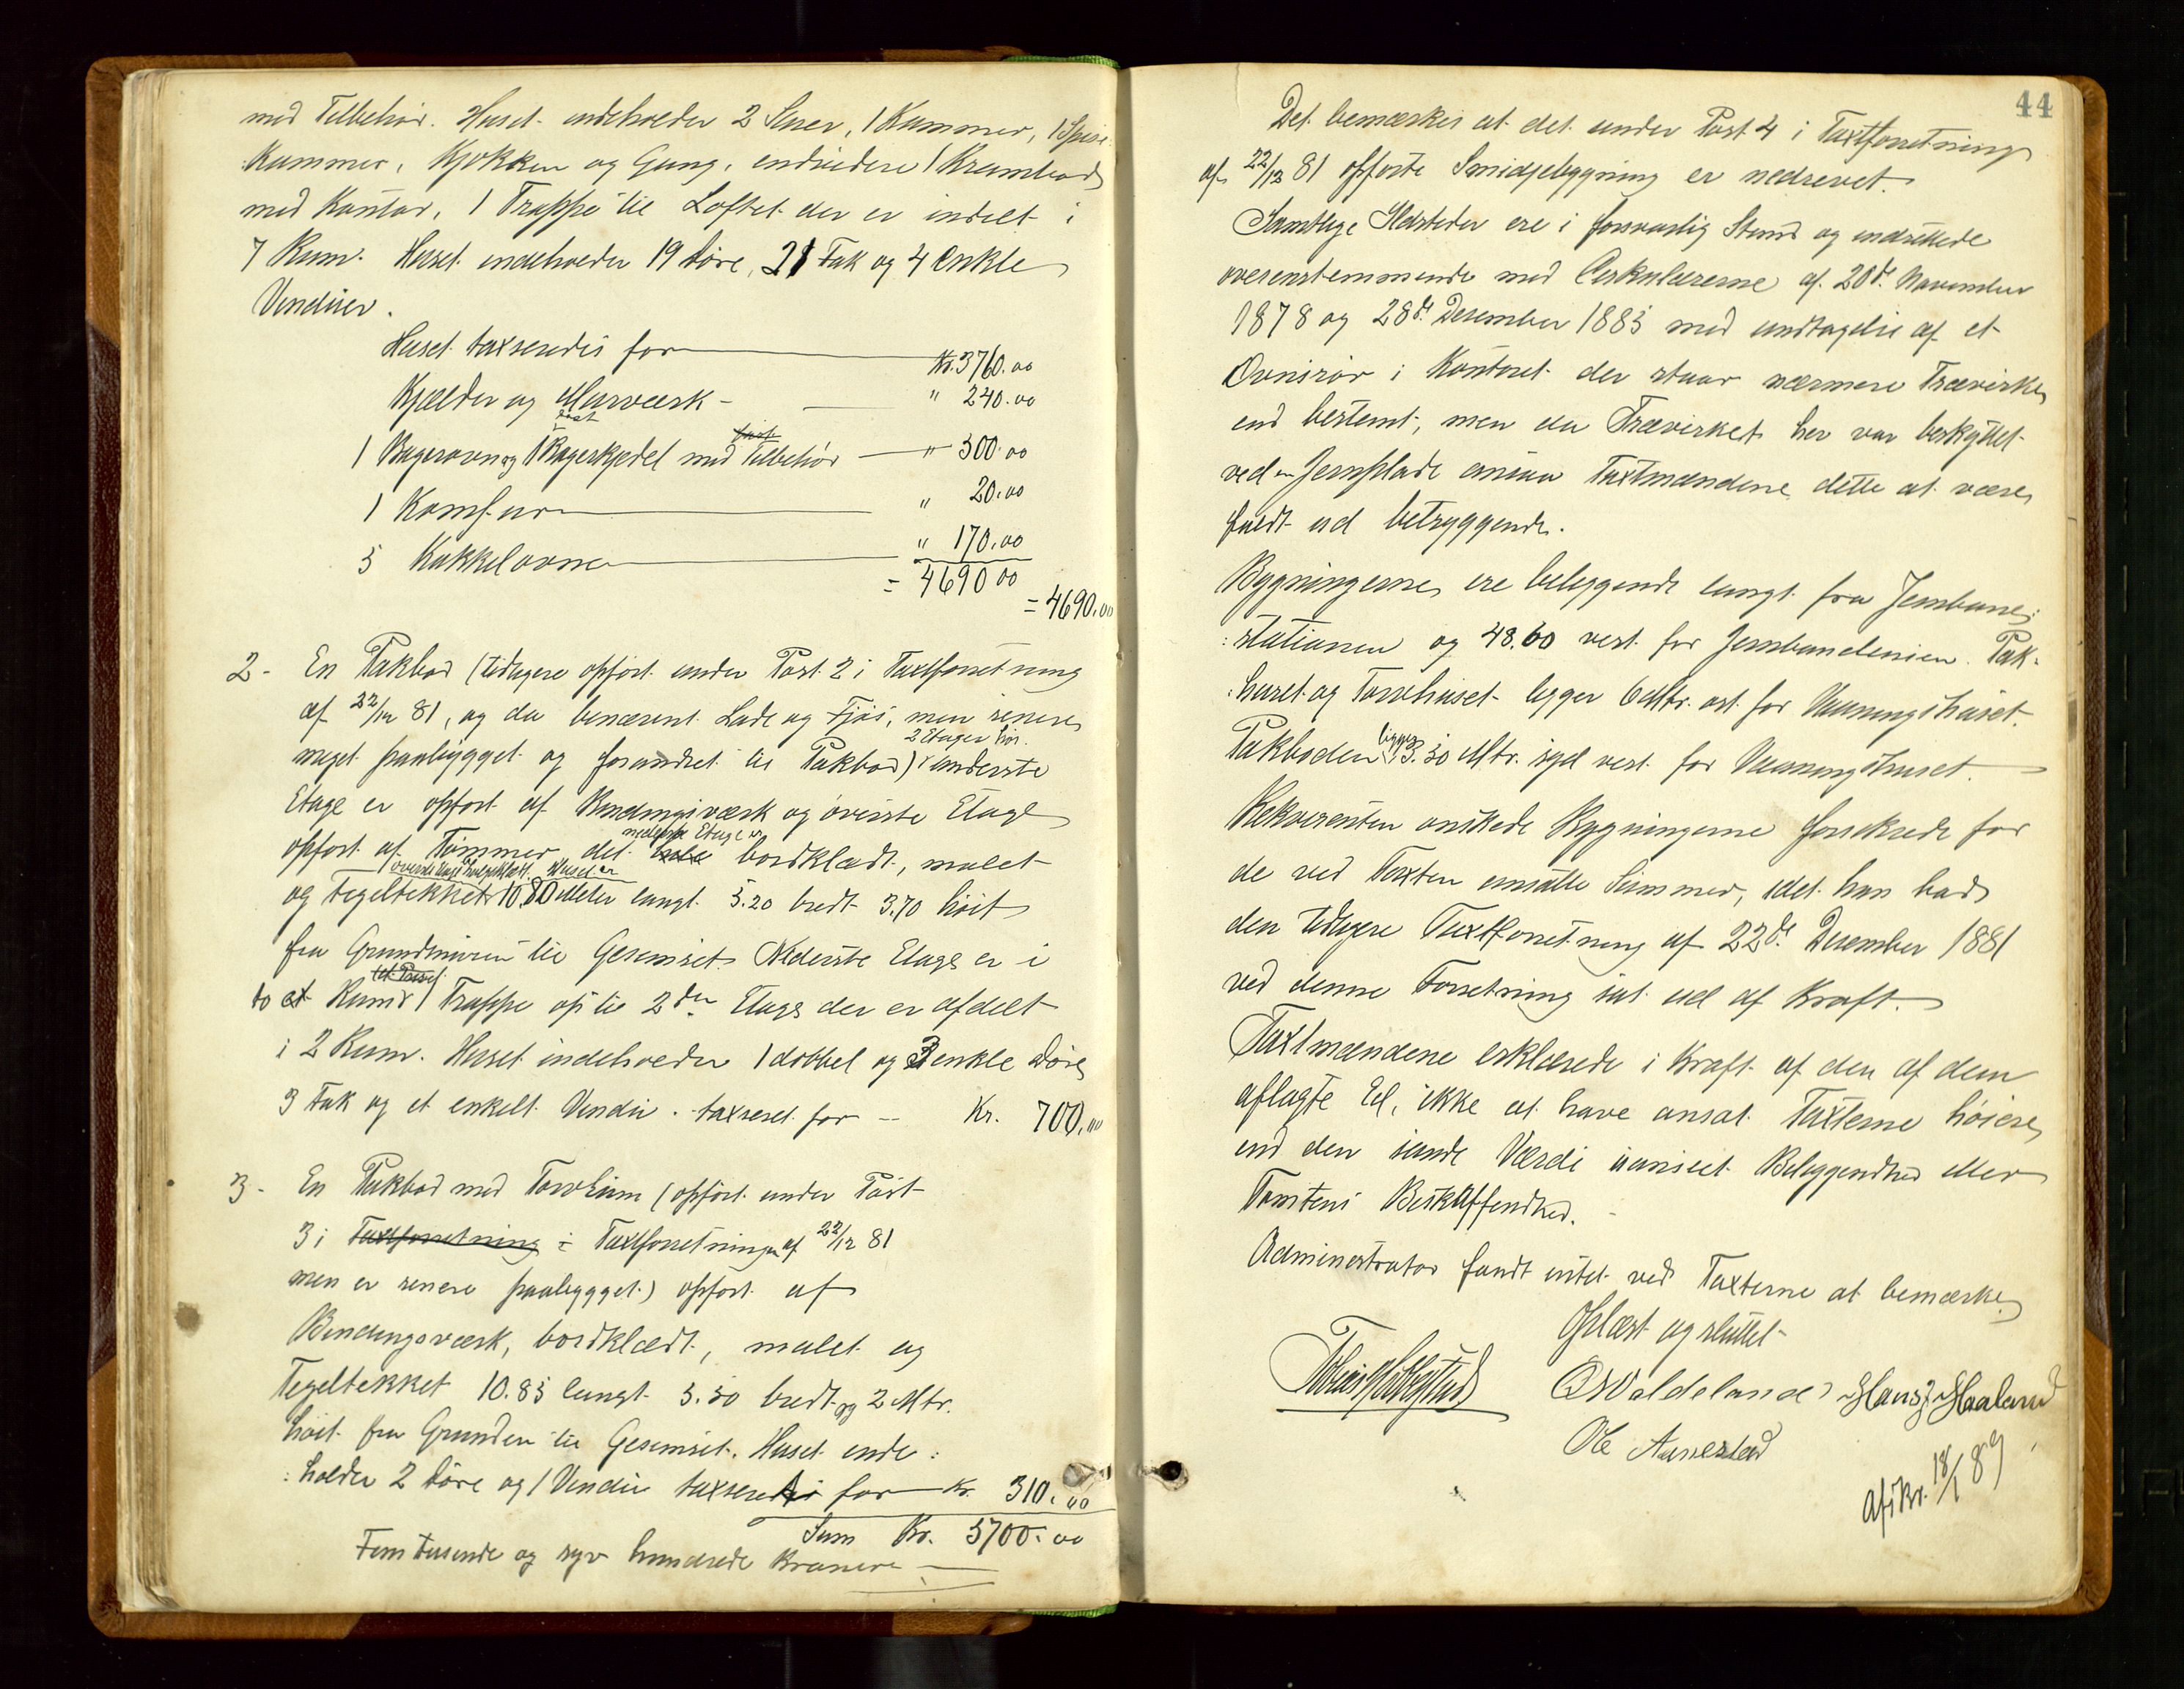 med Tilbehør. Huset indeholder 2 Stuer, 1 Kammer, 1 Spise:
Kammer, Kjøkken og Gang, endvidere 1 Krambod
med Kontor, 1 Trappe til Loftet der er indelt i
7 Rum. Huset indeholder 19 Døre, 21 Fak og 4 enkle
Vinduer.
Huset taxseredes for Kr. 3760.00
Kjælder og Murværk - " 240.00
1 Bagerovn og 1 Bagerkjedel med Tilbehør " 300.00
1 Komfur " 20.00
5 Kakkelovne " 170.00
= 4690 00
= 4690.00
2 - En Pakbod (tidligere opført under Post 2 i Taxtforretning
af 22/12 81, og da benævnt Lade og Fjøs, men senere
2 Etager høi.
meget paabygget og forandret til Pakbod) underste
Etage er opført af Bindingsværk og øverste Etage
nederste Etage er
opført af Tømmer det hele bordklædt, malet
øverste Etage Huset er
og Tegeltekket 10.80 Meter langt 5.20 bredt 3.70 høit
fra Grundmuren til Gesemset. Nederste Etage er i
to et Rum 1 Trappe op til 2den Etage der er afdelt
i 2 Rum. Huset indeholder 1 dobbel og 3 enkle Døre
3 Fak og et enkelt Vindu. taxseret for -- Kr. 700.00
3 - En Pakbod med Torvhus (opført under Post
3 i Taxtforretning i Taxtforretningen af 22/12 81
men er senere paabygget) opført af
Bindingsværk, bordklædt, malet og
Tegeltekket 10.85 langt 5.50 bredt og 2 Mtr.
høit fra Grunden til Gesemset. Huset inde:
:holder 2 Døre og 1 Vindu taxseredes for Kr. 310.00
Sum Kr. 5700.00
Fem tusende og syv hundrede Kroner
44
Det bemærkes at det under Post 4 i Taxtforretning
af 22/12 81 opførte Smidjebygning er nedrevet.
Samtlige Ildsteder ere i forsvarlig Stand og indrettede
overenstemmende med Cirkulærerne af 20de November
1878 og 28de Desember 1885 med undtagelse af et
Ovnsrør i Kontoret der staar nærmere Trævirke
end bestemt, men da Trævirket her var beskyttet
ved en Jernplade ansaa Taxtmændene dette at være
fuldt ud betryggende.
Bygningerne ere beliggende langt fra Jernbane:
:stationen og 48.60 vest for Jernbanelinien. Pak:
:huset og Torvhuset ligger 6 Mtr. øst for Vaaningshuset.
Pakboden ligger 3.50 Mtr. syd vest for Vaaningshuset.
Rekvirenten ønskede Bygningerne forsikrede for
de ved Taxten ansatte Summer, idet han bad
den tidligere Taxtforretning af 22de Desember 1881
ved denne Forretning sat ud af Kraft.
Taxtmændene erklærede i Kraft af den af dem
aflagte Ed, ikke at have ansat Taxterne høiere
end den sande Værdi uanseet Beliggenhed eller
Tomtens Beskaffenhed.
Administrator fandt intet ved Taxterne at bemærke
Oplæst og sluttet
O Waldeland Hans J. Haaland
Ole Aanestad
Afskr. 18/1 89